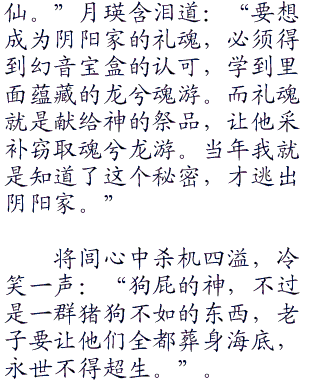 仙。”月瑛含泪道：“要想
成为阴阳家的礼魂，必须得
到幻音宝盒的认可，学到里
面蕴藏的龙兮魂游。而礼魂
就是献给神的祭品，让他采
补窃取魂兮龙游。当年我就
是知道了这个秘密，才逃出
阴阳家。”
将闾心中杀机四溢，冷
笑一声：“狗屁的神，不过
是一群猪狗不如的东西，老
子要让他们全都葬身海底，
永世不得超生。”。